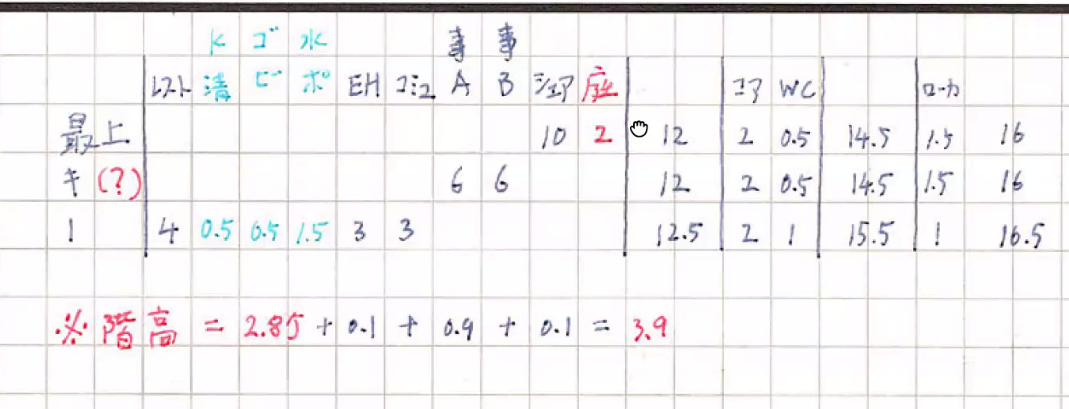 K ゴ 水 事 事
レスト 清 ビ ポ EH コミュ A B シェア 座 コア WC ローカ
最上 10 2 12 2 0.5 14.5 1.5 16
キ (?) 6 6 12 2 0.5 14.5 1.5 16
1 4 0.5 0.5 1.5 3 3 12.5 2 1 15.5 1 16.5
※ 階高 = 2.85 + 0.1 + 0.9 + 0.1 = 3.9